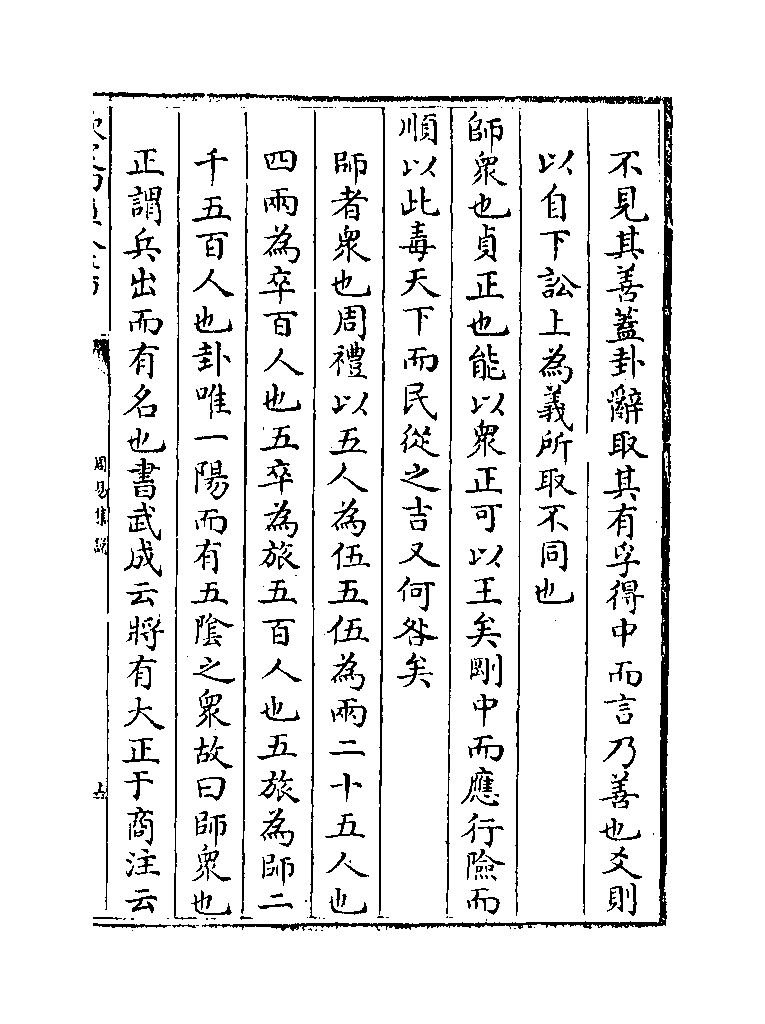 不見其善蓋卦辭取其有孚得中而言乃善也爻則
以自下訟上為義所取不同也
師衆也貞正也能以衆正可以王矣剛中而應行險而
順以此毒天下而民從之吉又何咎矣
師者衆也周禮以五人為伍五伍為兩二十五人也
四兩為卒百人也五卒為旅五百人也五旅為師二
千五百人也卦唯一陽而有五陰之衆故曰師衆也
正謂兵出而有名也書武成云將有大正于商注云
周易集說